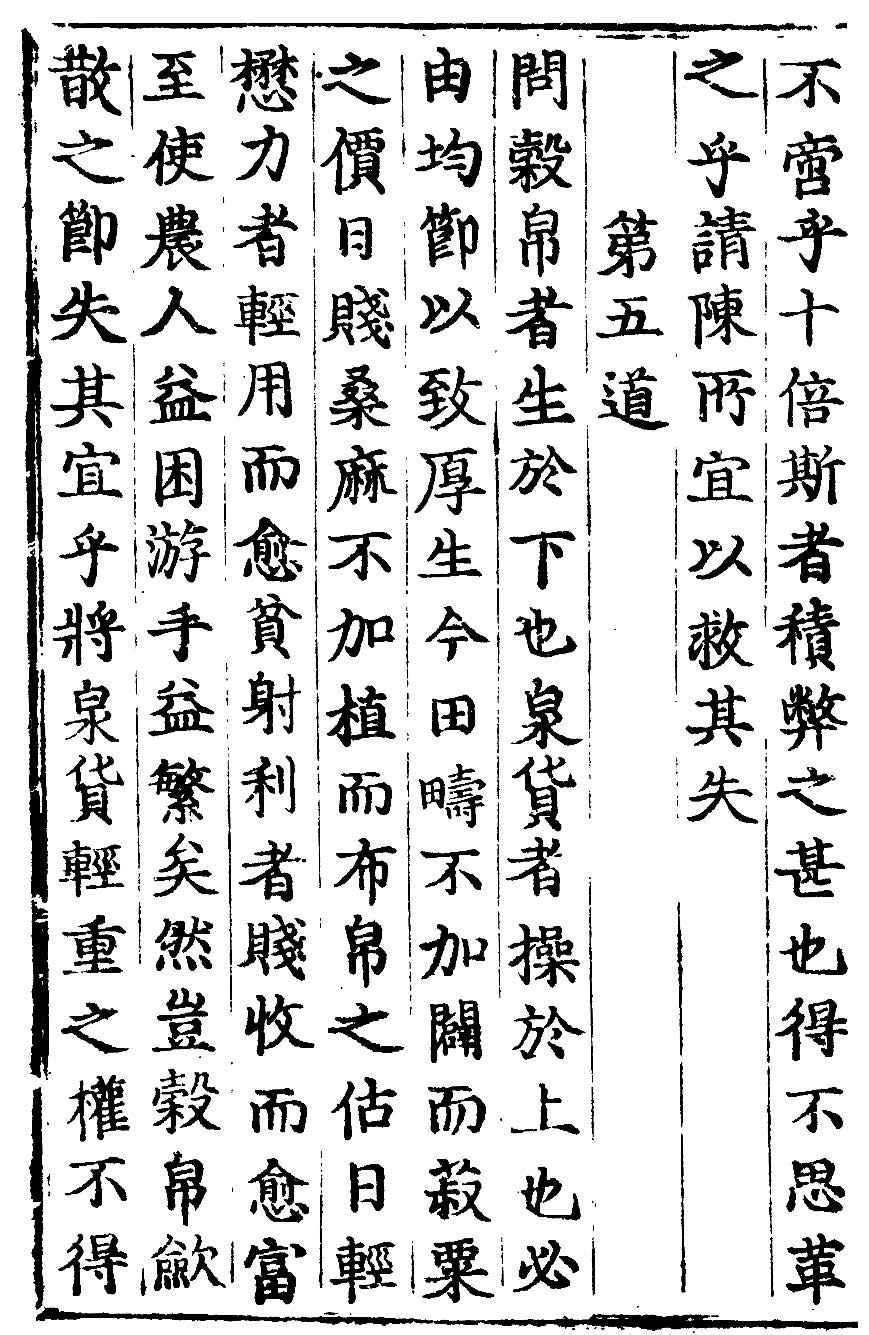 不啻乎十倍斯者積弊之甚也得不思革
之乎請陳所宜以救其失
第五道
問穀帛者生於下也泉貨者操於上也必
由均節以致厚生今田疇不加闢而菽粟
之價日賤桑麻不加植而布帛之估日輕
懋力者輕用而愈貧射利者賤收而愈富
至使農人益困游手益繁矣然豈穀帛歛
散之節失其宜乎將泉貨輕重之權不得